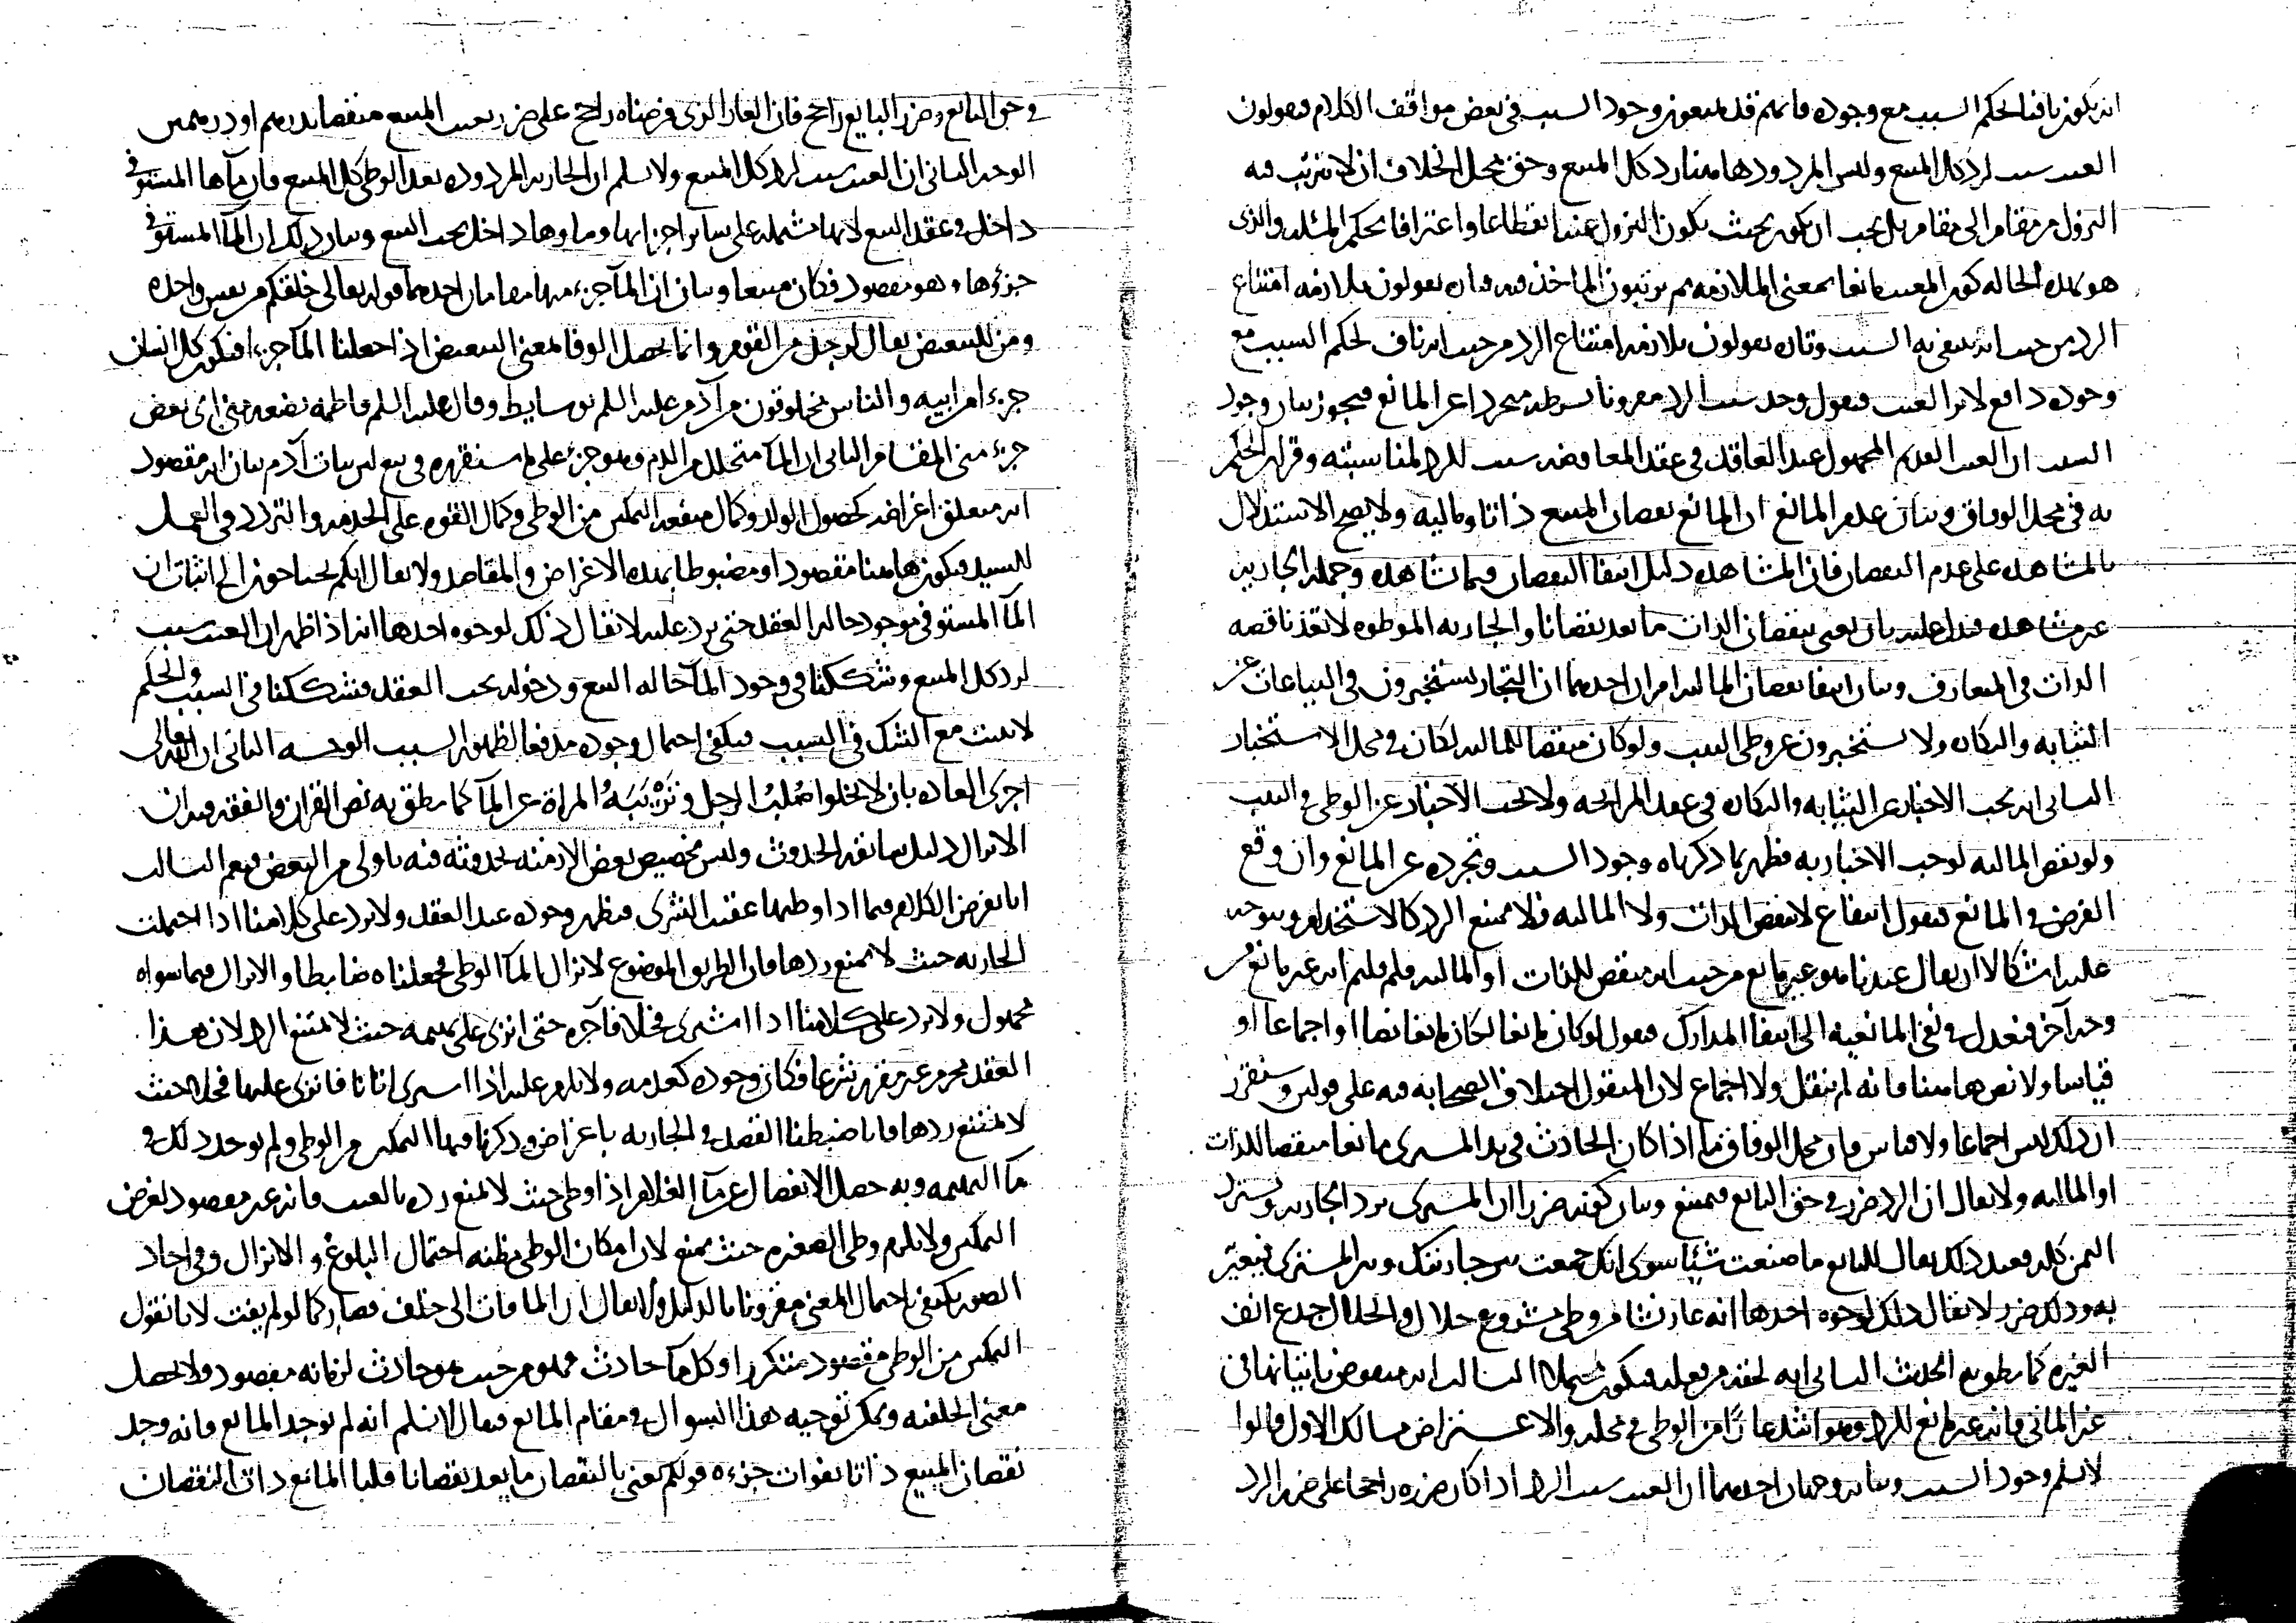 ان يكون نافيا لحكم السبب مع وجوده فانهم قد يمنعون وجود السبب في بعض مواقف الكلام فيقولون
العيب سبب لرد كل المبيع وليس المردود هاهنا رد كل المبيع وحق محل الخلاف ان لا يترتب فيه
النزول من مقام الى مقام بل يجب ان يكون بحيث يكون النزول عنه انقطاعا واعترافا بحكم المسئلة والذي
هو بهذه الحالة كون العيب مانعا بمعنى الملازمة ثم يرتبون المأخذ فيه فتارة يقولون بملازمة امتناع
الرد من حيث انه ينتفي به السبب وتارة يقولون بملازمة امتناع الرد من حيث انه ناف لحكم السبب مع
وجوده دافع لاثر العيب فنقول وجد سبب الرد مقرونا بشرطه مجردا عن المانع فيجوز بيان وجود
السبب ان العيب القديم المجهول عند العاقد في عقد المعاوضة سبب للرد لمناسبته وقران الحكم
به في محل الوفاق وبيان عدم المانع ان المانع نقصان المبيع ذاتا ومالية ولا يصح الاستدلال
بالمشاهدة على عدم النقصان فان المشاهدة دليل انتفاء النقصان فيما شاهده وجملة الجارية
غير مشاهدة فيدل عليه بان يعنى بنقصان الذات ما يعد نقصانا والجارية الموطوءة لا تعد ناقصة
الذات في المتعارف وبيان انتفاء نقصان المالية امران احدهما ان التجار يستخبرون في البياعات عن
الثيابة والبكارة ولا يستخبرون عن وطى الثيب ولو كان منقصا للمالية لكان في محل الاستخبار
الثاني انه يجب الاخبار عن الثيابة والبكارة في عقد المرابحة ولا يجب الاخبار عن الوطى في الثيب
ولو نقص المالية لوجب الاخبار به فظهر بما ذكرناه وجود السبب وتجرده عن المانع وان وقع
الفرض في المانع فنقول انتفاع لا ينقص الذات ولا المالية فلا يمنع الرد كالاستخدام ويتوجه
عليه اشكالا ان يقال عندنا هو غير مانع من حيث انه منقص للذات او المالية فلم قلتم انه غير مانع من
وجه آخر فنعدل في نفي المانعية الى انتفاء المدارك فنقول لو كان مانعا لكان مانعا نصا او اجماعا او
قياسا ولا نص هاهنا فانه لم ينقل ولا اجماع لان المنقول اختلاف الصحابة فيه على قولين وسنقرر
ان ذلك ليس اجماعا ولا قياس فان محل الوفاق فيما اذا كان الحادث في يد المشتري مانعا منقصا للذات
او المالية ولا يقال ان الرد ضرر في حق البائع فيمتنع وبيان كونه ضررا ان المشتري يرد الجارية ويسترد
الثمن كله فعند ذلك يقال للبائع ما صنعت شيئا سوى انك جمعت بين جاريتك وبين المشتري فيتعير
به وذلك ضرر لا يقال ذلك لوجوه احدها انه عار نشا من وطى مشروع حلال والحلال جدع انف
الغيرة كما نطق به الحديث الثاني انه لحقه من فعله فيكون متحملا الثالث انه منقوض باتيانها في
غير المأتى فانه غير مانع للرد وهو اشد عارا من الوطى في محله والاعتراض مسالك الاول قالوا
لا نسلم وجود السبب وبيانه وجهان احدهما ان العيب سبب الرد اذا كان ضرره راجحا على ضرر الرد
في حق البائع وضرر البائع راجح فان العار الذي فرضناه راجح على ضرر بعيب المبيع منقصا بدرهم او درهمين
الوجه الثاني ان العيب سبب لرد كل المبيع ولا نسلم ان الجارية المردودة بعد الوطى كل المبيع فان ماها المستوفى
داخل في عقد البيع لانها مشتملة على سائر اجزائها وماوها داخل تحت البيع وبيان ذلك ان الماء المستوفى
جزءها وهو مقصود فكان مبيعا وبيان ان الماء جزء منها مقامان احدهما قوله تعالى خلقكم من نفس واحدة
ومن للتبعيض يقال لرجل من القوم وانما يحصل الوفا بمعنى التبعيض اذا جعلنا الماء جزءا فيكون كل انسان
جزءا من ابيه والناس مخلوقون من آدم عليه السلم بوسايط وقال عليه السلم فاطمة بضعة مني اي بعض
جزء مني المقام الثاني ان الماء متحلل من الدم وهو جزء على ما سنقرره في بيع لبن بنات آدم بيان انه مقصود
انه متعلق اغراض كحصول الولد وكمال منفعة التمكين من الوطى وكمال القوة على الخدمة والتردد في العمل
للسيد فيكون هاهنا مقصودا ومضبوطا بهذه الاغراض والمقاصد ولا يقال انكم تحتاجون الى اثبات ان
الماء المستوفى موجود حالة العقد حتى يرد عليه لا نقال ذلك لوجوه احدها انه اذا ظهر ان العيب سبب
لرد كل المبيع وشككنا في وجود الماء حالة البيع ودخوله تحت العقد فشككنا في السبب والحكم
لا يثبت مع الشك في السبب فيكفي احتمال وجوده مدفعا لظهور السبب الوجه الثاني ان الله تعالى
اجرى العادة بان لا يخلوا صلب الرجل وتريبة المراة عن الماء كما نطق به نص القرآن والفقه فيه ان
الانزال دليل سابقة الحدوث وليس تخصيص بعض الازمنة لحدوثه فيه باولى من البعض فيعم الثالث
انا نفرض الكلام فيما اذا وطيها عقيب الشرى فيظهر وجوده عند العقد ولا يرد على كلامنا اذا احتملت
الجارية حيث لا يمنع ردها فان الطريق الموضوع لانزال الماء الوطى فجعلناه ضابطا والانزال فيما سواه
مجهول ولا يرد على كلامنا اذا اشترى فحلا فآجره حتى انزى على بهيمة حيث لا يمتنع الرد لان هذا
العقد محرم غير مقرر شرعا فكان وجوده كعدمه ولا يلزم عليه اذا اشترى اتانا فانزى عليها فحلا حيث
لا يمتنع ردها فانا ضبطنا القصد في الجارية باغراض وذكرنا فيها التمكين من الوطى ولم يوجد ذلك في
ماء البهيمة وبه حصل الانفصال عن ماء الغلام اذا وطى حيث لا يمنع رده بالعيب فانه غير مقصود لغرض
التمكين ولا يلزم وطى الصغيرة حيث يمنع لان امكان الوطى مظنة احتمال البلوغ والانزال وفي احاد
الصور يكتفى باحتمال المعنى مقرونا بالدليل ولا يقال ان الما فات الى خلف فصار كما لو لم يفت لانا نقول
التمكين من الوطى مقصود متكرر او كل ماء حادث فهو من حيث هو حادث لزمانه مقصود ولا يحصل
معنى الخلفية ويمكن توجيه هذا السوال في مقام المانع فيقال لا نسلم انه لم يوجد المانع فانه وجد
نقصان المبيع ذاتا بفوات جزءه قولكم نعني بالنقصان ما يعد نقصانا قلنا المانع ذات النقصان